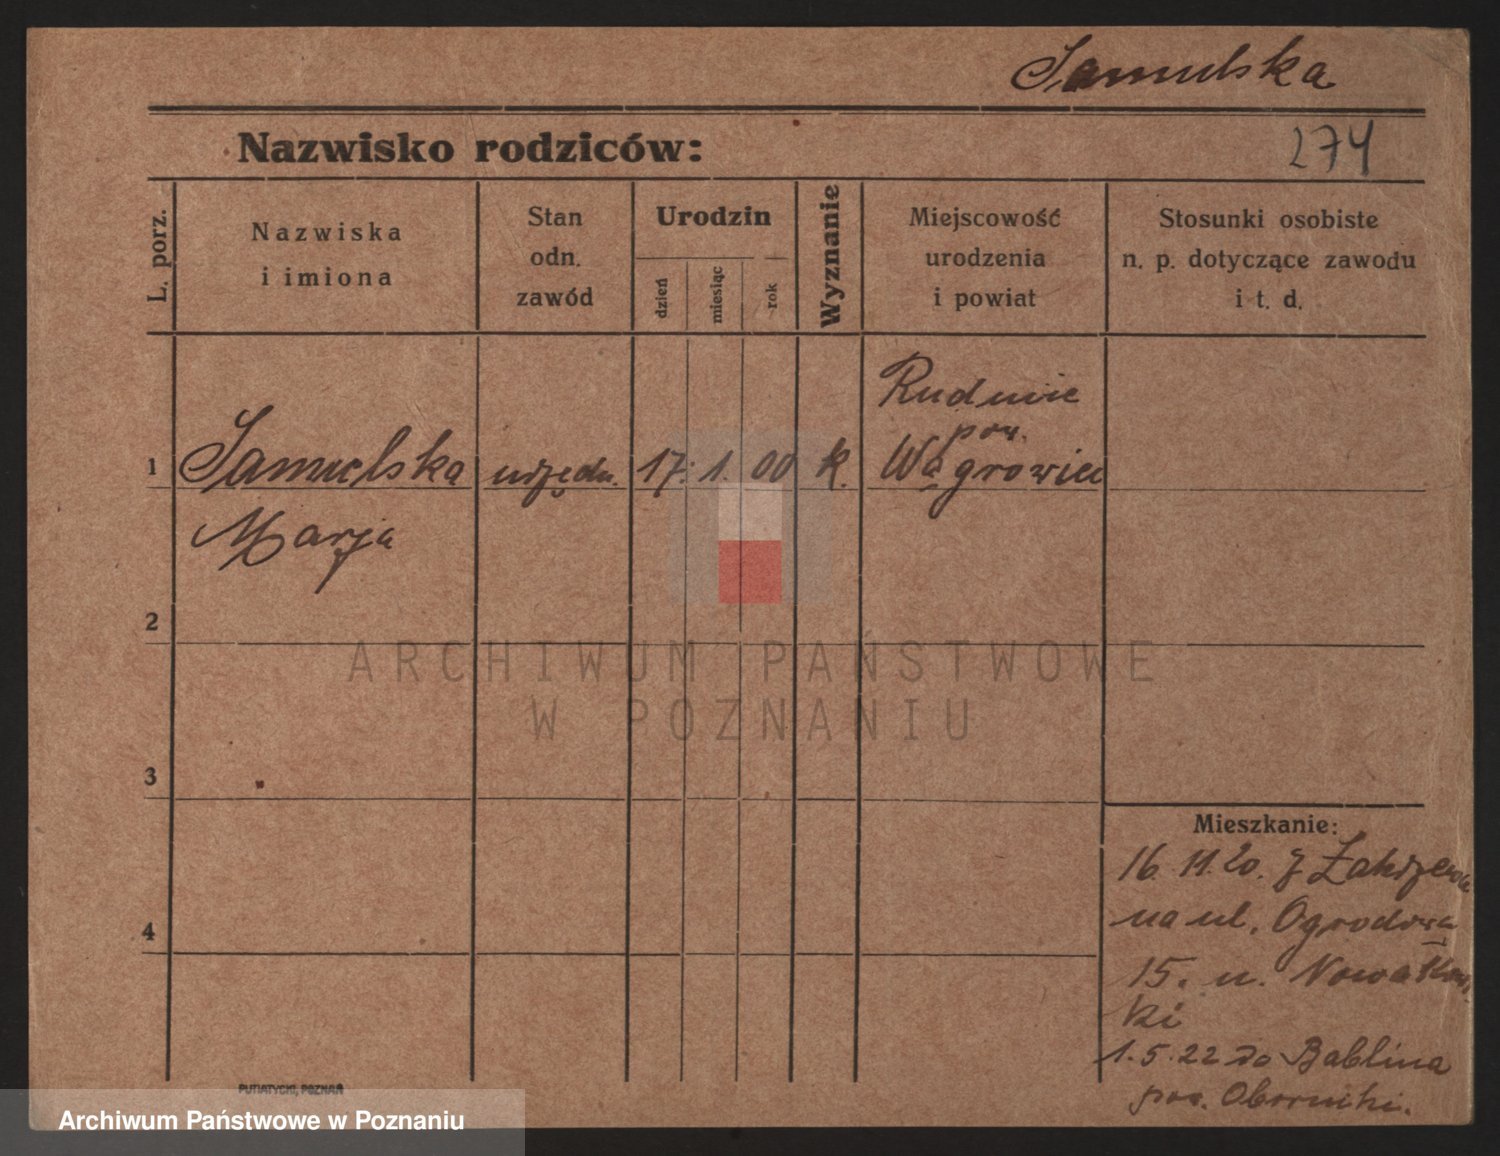 Samulska
Nazwisko rodziców:
274
L. porz.
Nazwiska
i imiona
Stan
odn.
zawód
Urodzin
dzień
miesiąc
rok
Wyznanie
Miejscowość
urodzenia
i powiat
Stosunki osobiste
n. p. dotyczące zawodu
i t. d.
1
Samulska
Marja
urzędn.
17. 1. 00
k.
Rudnicze
pow.
Wągrowiec
2
3
4
ARCHIWUM PAŃSTWOWE
W POZNANIU
Mieszkanie:
16. 11. 20. z Zakrzewa
na ul. Ogrodowa
15. u. Nowakows
ki
1. 5. 22 do Bablina
pow. Oborniki.
PUTIATYCKI, POZNAŃ
Archiwum Państwowe w Poznaniu